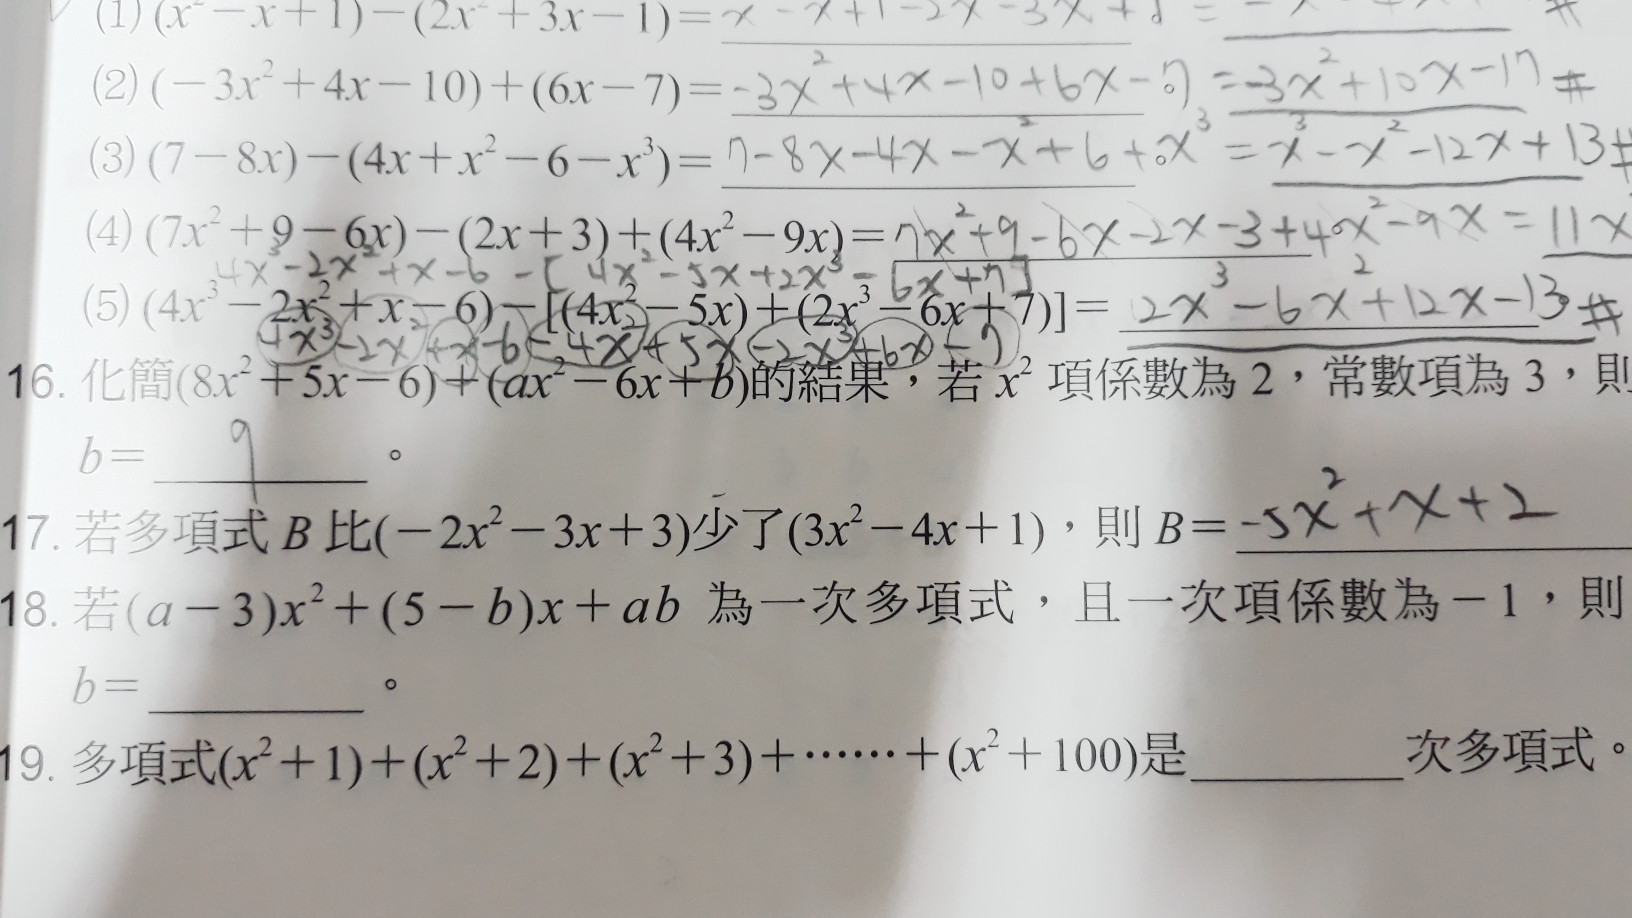 (1) (x²－x＋1)－(2x²＋3x－1)=
(2) (－3x²＋4x－10)＋(6x－7)= -3x²+4x-10+6x-7 = -3x²+10x-17 #
(3) (7－8x)－(4x＋x²－6－x³)= 7-8x-4x-x²+6+x³ = x³-x²-12x+13 #
(4) (7x²＋9－6x)－(2x＋3)＋(4x²－9x)= 7x²+9-6x-2x-3+4x²-9x = 11x
4x³-2x²+x-6-[4x²-5x+2x³-6x+7]
(5) (4x³－2x²＋x－6)－[(4x²－5x)＋(2x³－6x＋7)]= 2x³-6x²+12x-13 #
4x³-2x²+x-6-4x²+5x-2x³+6x-7
16. 化簡(8x²＋5x－6)＋(ax²－6x＋b)的結果，若 x² 項係數為 2，常數項為 3，則
b= 9 。
17. 若多項式 B 比(－2x²－3x＋3)少了(3x²－4x＋1)，則 B= -5x²+x+2
18. 若(a－3)x²＋(5－b)x＋ab 為一次多項式，且一次項係數為－1，則
b= 。
19. 多項式(x²＋1)＋(x²＋2)＋(x²＋3)＋……＋(x²＋100)是 次多項式。